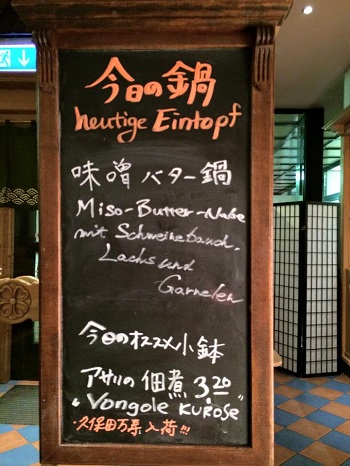 今日の鍋
heutige Eintopf
味噌バター鍋
Miso-Butter-Nabe
mit Schweinebauch,
Lachs und
Garnelen
今日のオススメ小鉢
アサリの佃煮 3.20
"Vongole KUROSE"
・久保田万寿入荷!!!